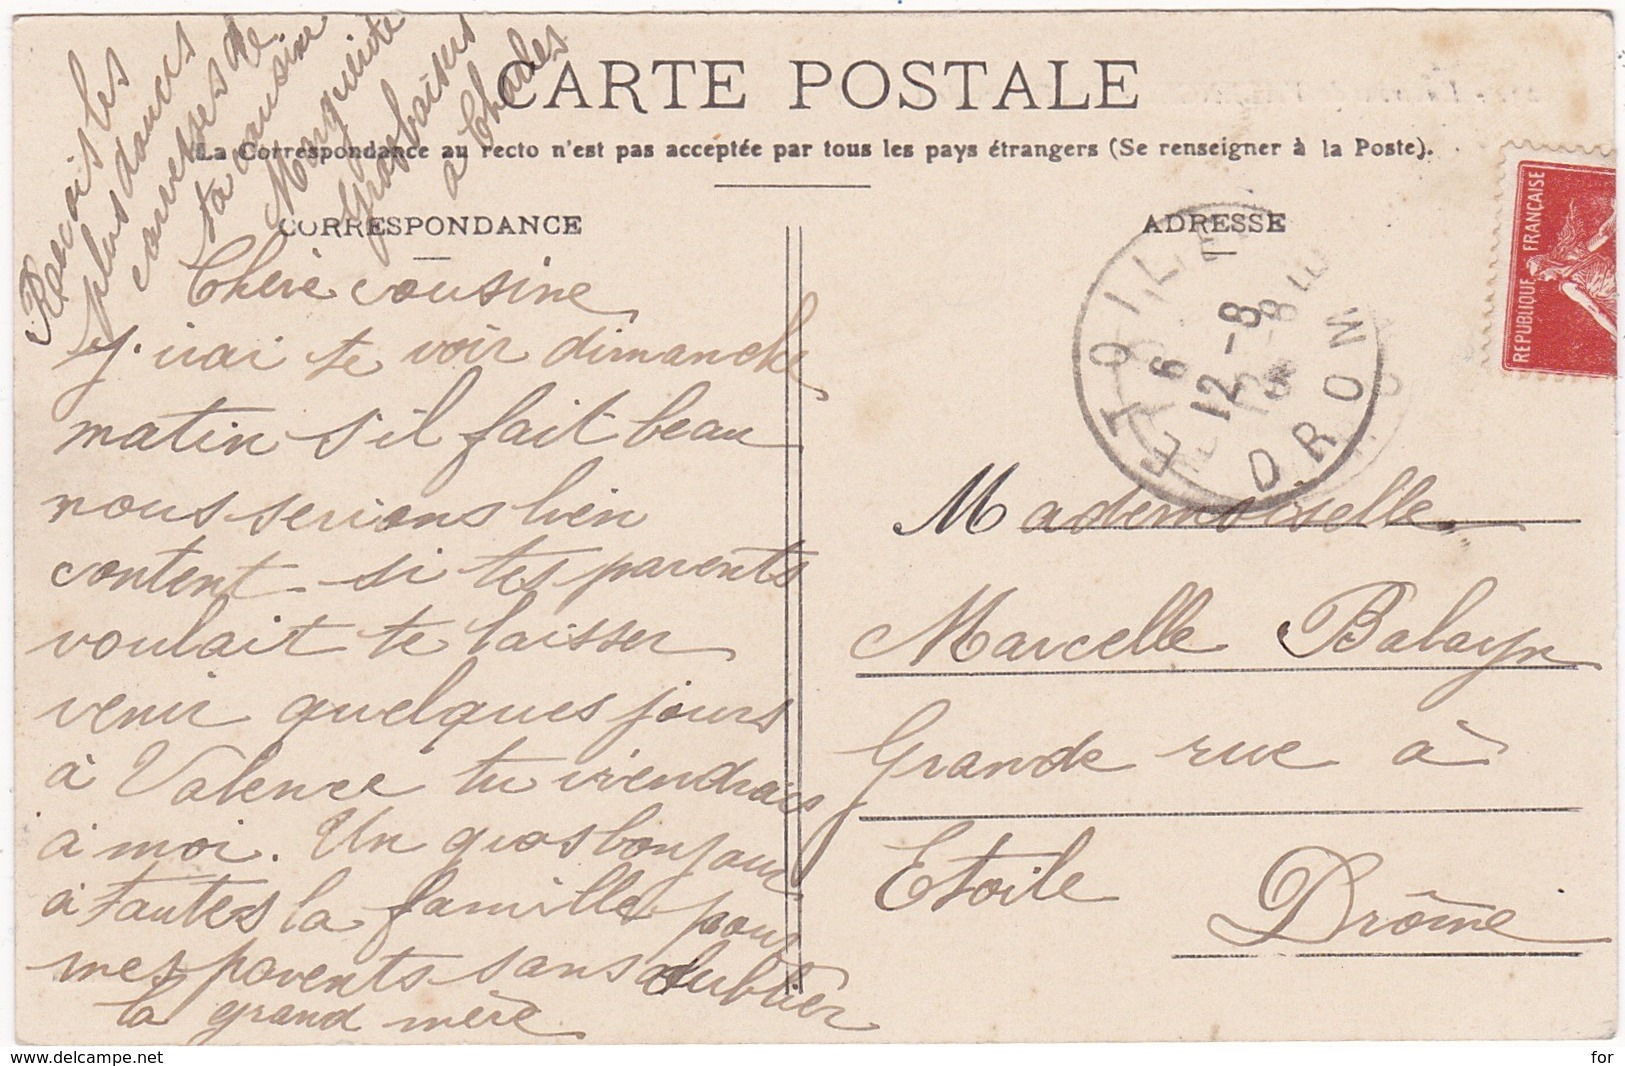 CARTE POSTALE
La Correspondance au recto n'est pas acceptée par tous les pays étrangers (Se renseigner à la Poste).
CORRESPONDANCE
Chère cousine
J'irai te voir dimanche
matin s'il fait beau
nous serions bien
content si tes parents
voulait te laisser
venir quelques jours
à Valence tu viendrais
à moi. Un gros bonjour
à toutes la famille pour
mes parents sans oublier
la grand mère
Recois les
plus douces
caresses de
ta cousine
Marguerite
Gros baisers
a Charles
ADRESSE
Mademoiselle
Marcelle Balayn
Grande rue à
Etoile
Drôme
ETOILE
6
12 - 8
DROME
REPUBLIQUE FRANÇAISE
www.delcampe.net
for